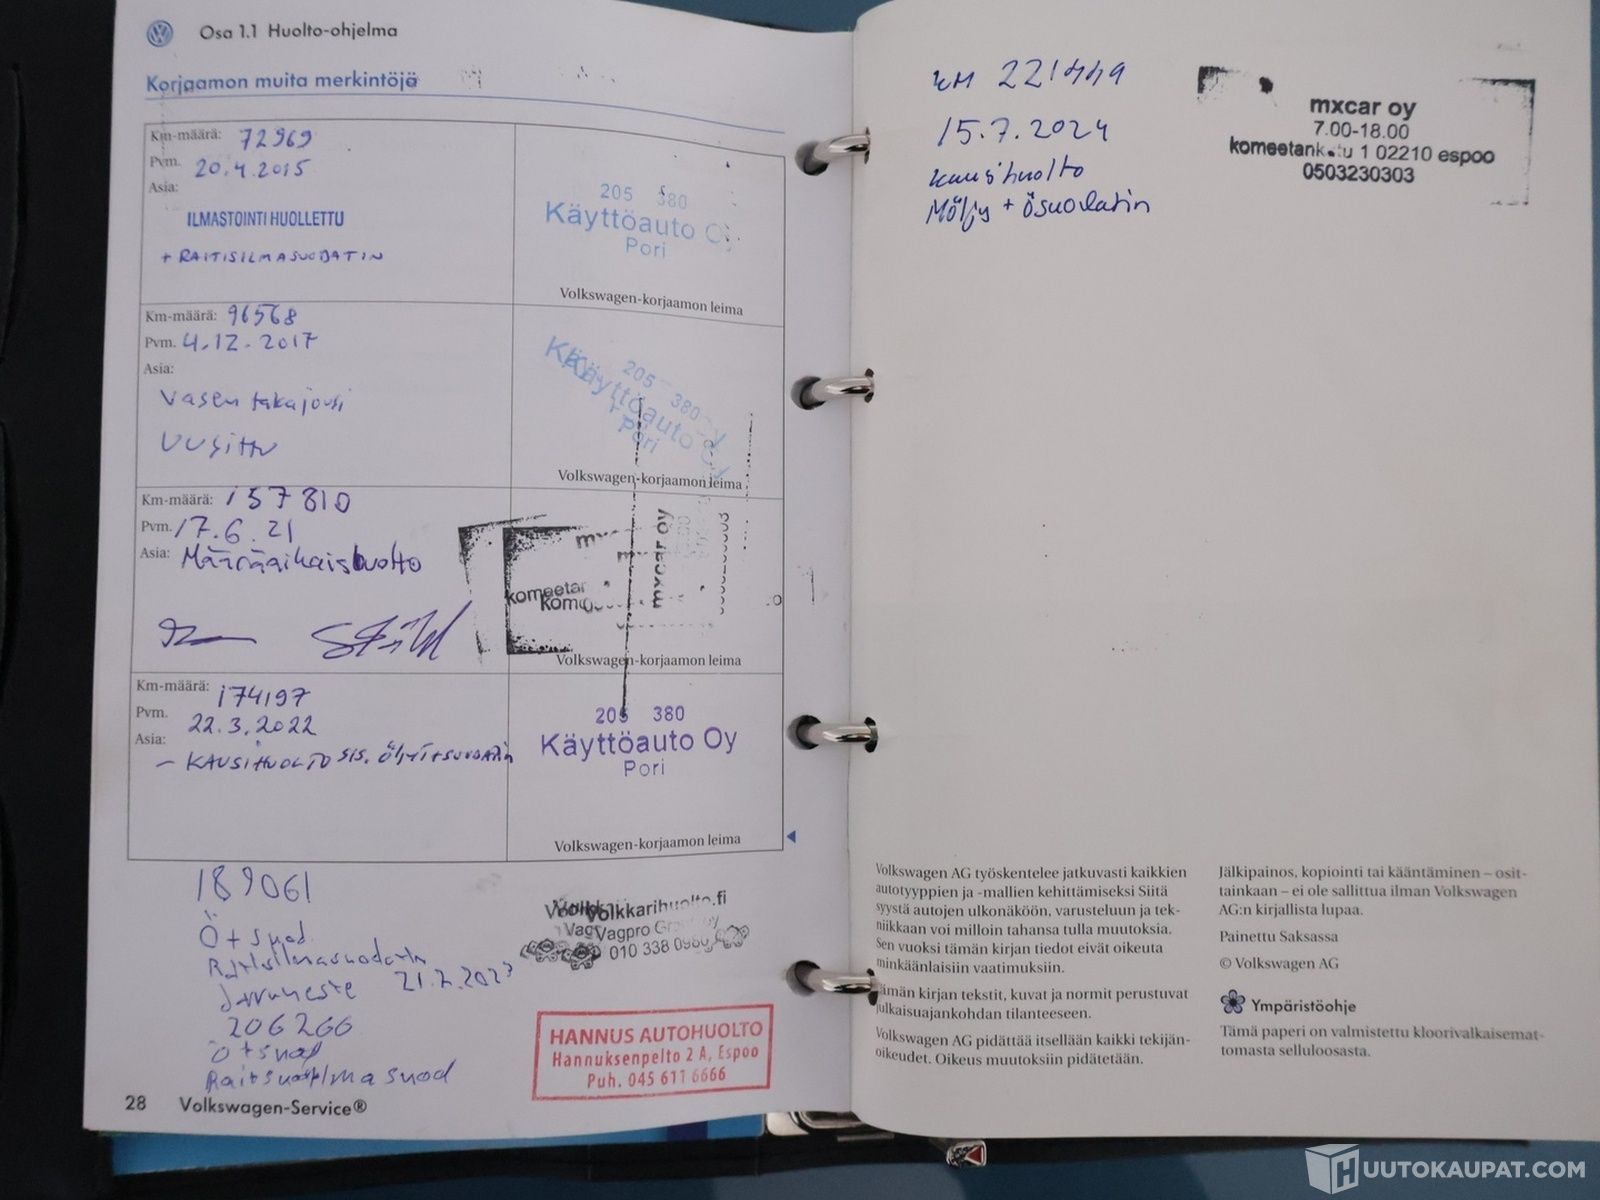 Osa 1.1 Huolto-ohjelma
Korjaamon muita merkintöjä
Km-määrä: 72969
Pvm. 20.4.2015
Asia:
ILMASTOINTI HUOLLETTU
+ RAITISILMASUODATIN
205 380
Käyttöauto Oy
Pori
Volkswagen-korjaamon leima
Km-määrä: 96568
Pvm. 4.12.2017
Asia:
Vasen takajousi
Uusittu
205 380
Käyttöauto Oy
Pori
Volkswagen-korjaamon leima
Km-määrä: 157810
Pvm. 17.6.21
Asia: Määräaikaishuolto
mxcar oy
Volkswagen-korjaamon leima
Km-määrä: 174197
Pvm. 22.3.2022
Asia:
- KAUSIHUOLTO SIS. ÖLJYT+SUODATIN
205 380
Käyttöauto Oy
Pori
Volkswagen-korjaamon leima
189061
Ö+suod
Raitisilmasuodatin
Jarruneste 21.2.2023
206266
Ö+suod
Volkkarihuolto.fi
010 338 0980
HANNUS AUTOHUOLTO
Hannuksenpelto 2 A, Espoo
Puh. 045 611 6666
28 Volkswagen-Service®
KM 221449
15.7.2024
kausihuolto
Möljy + ösuodatin
mxcar oy
7.00-18.00
komeetankatu 1 02210 espoo
0503230303
Volkswagen AG työskentelee jatkuvasti kaikkien
autotyyppien ja -mallien kehittämiseksi Siitä
syystä autojen ulkonäköön, varusteluun ja tek-
niikkaan voi milloin tahansa tulla muutoksia.
Sen vuoksi tämän kirjan tiedot eivät oikeuta
minkäänlaisiin vaatimuksiin.
Tämän kirjan tekstit, kuvat ja normit perustuvat
julkaisuajankohdan tilanteeseen.
Volkswagen AG pidättää itsellään kaikki tekijän-
oikeudet. Oikeus muutoksiin pidätetään.
Jälkipainos, kopiointi tai kääntäminen – osit-
tainkaan – ei ole sallittua ilman Volkswagen
AG:n kirjallista lupaa.
Painettu Saksassa
© Volkswagen AG
Ympäristöohje
Tämä paperi on valmistettu kloorivalkaisemat-
tomasta selluloosasta.
HUUTOKAUPAT.COM